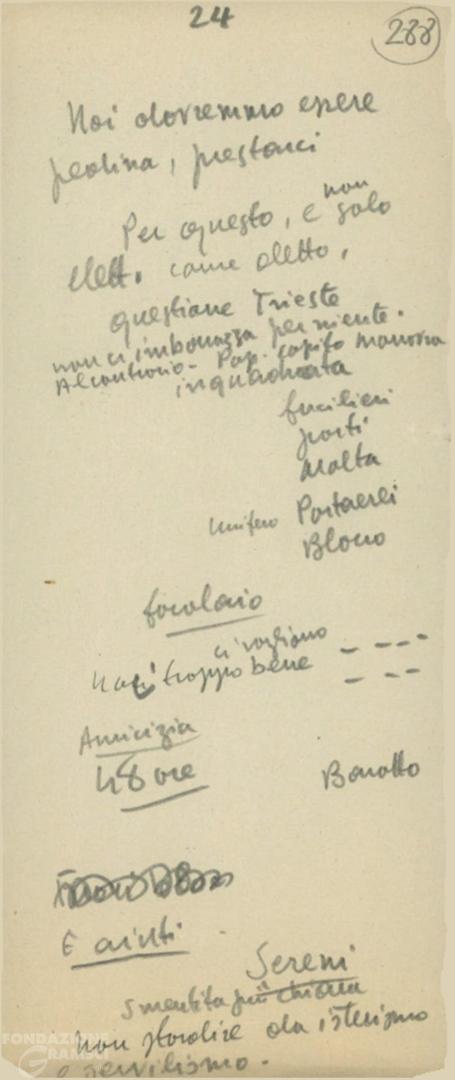 24
288
Noi dovremmo essere
pedina, prestarci
Per questo, e non solo
elett. come detto,
questione Trieste
non ci imbarazza per niente.
Al contrario. Pop. capito manovra
inquadrata
fucilieri
porti
Malta
Portaerei
Blocco
focolaio
ci vogliono
troppo bene
Amicizia
48 ore
Baratto
E aiuti
Sereni
smentita più chiara
non stordire da isterismo
e servilismo.
FONDAZIONE
GRAMSCI